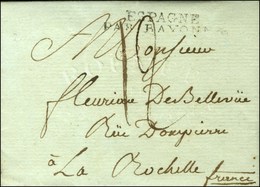 ESPAGNE
PAR BAYONNE
A Monsieur
fleuriau De Bellevüe
Rüe Dompierre
à La Rochelle
france